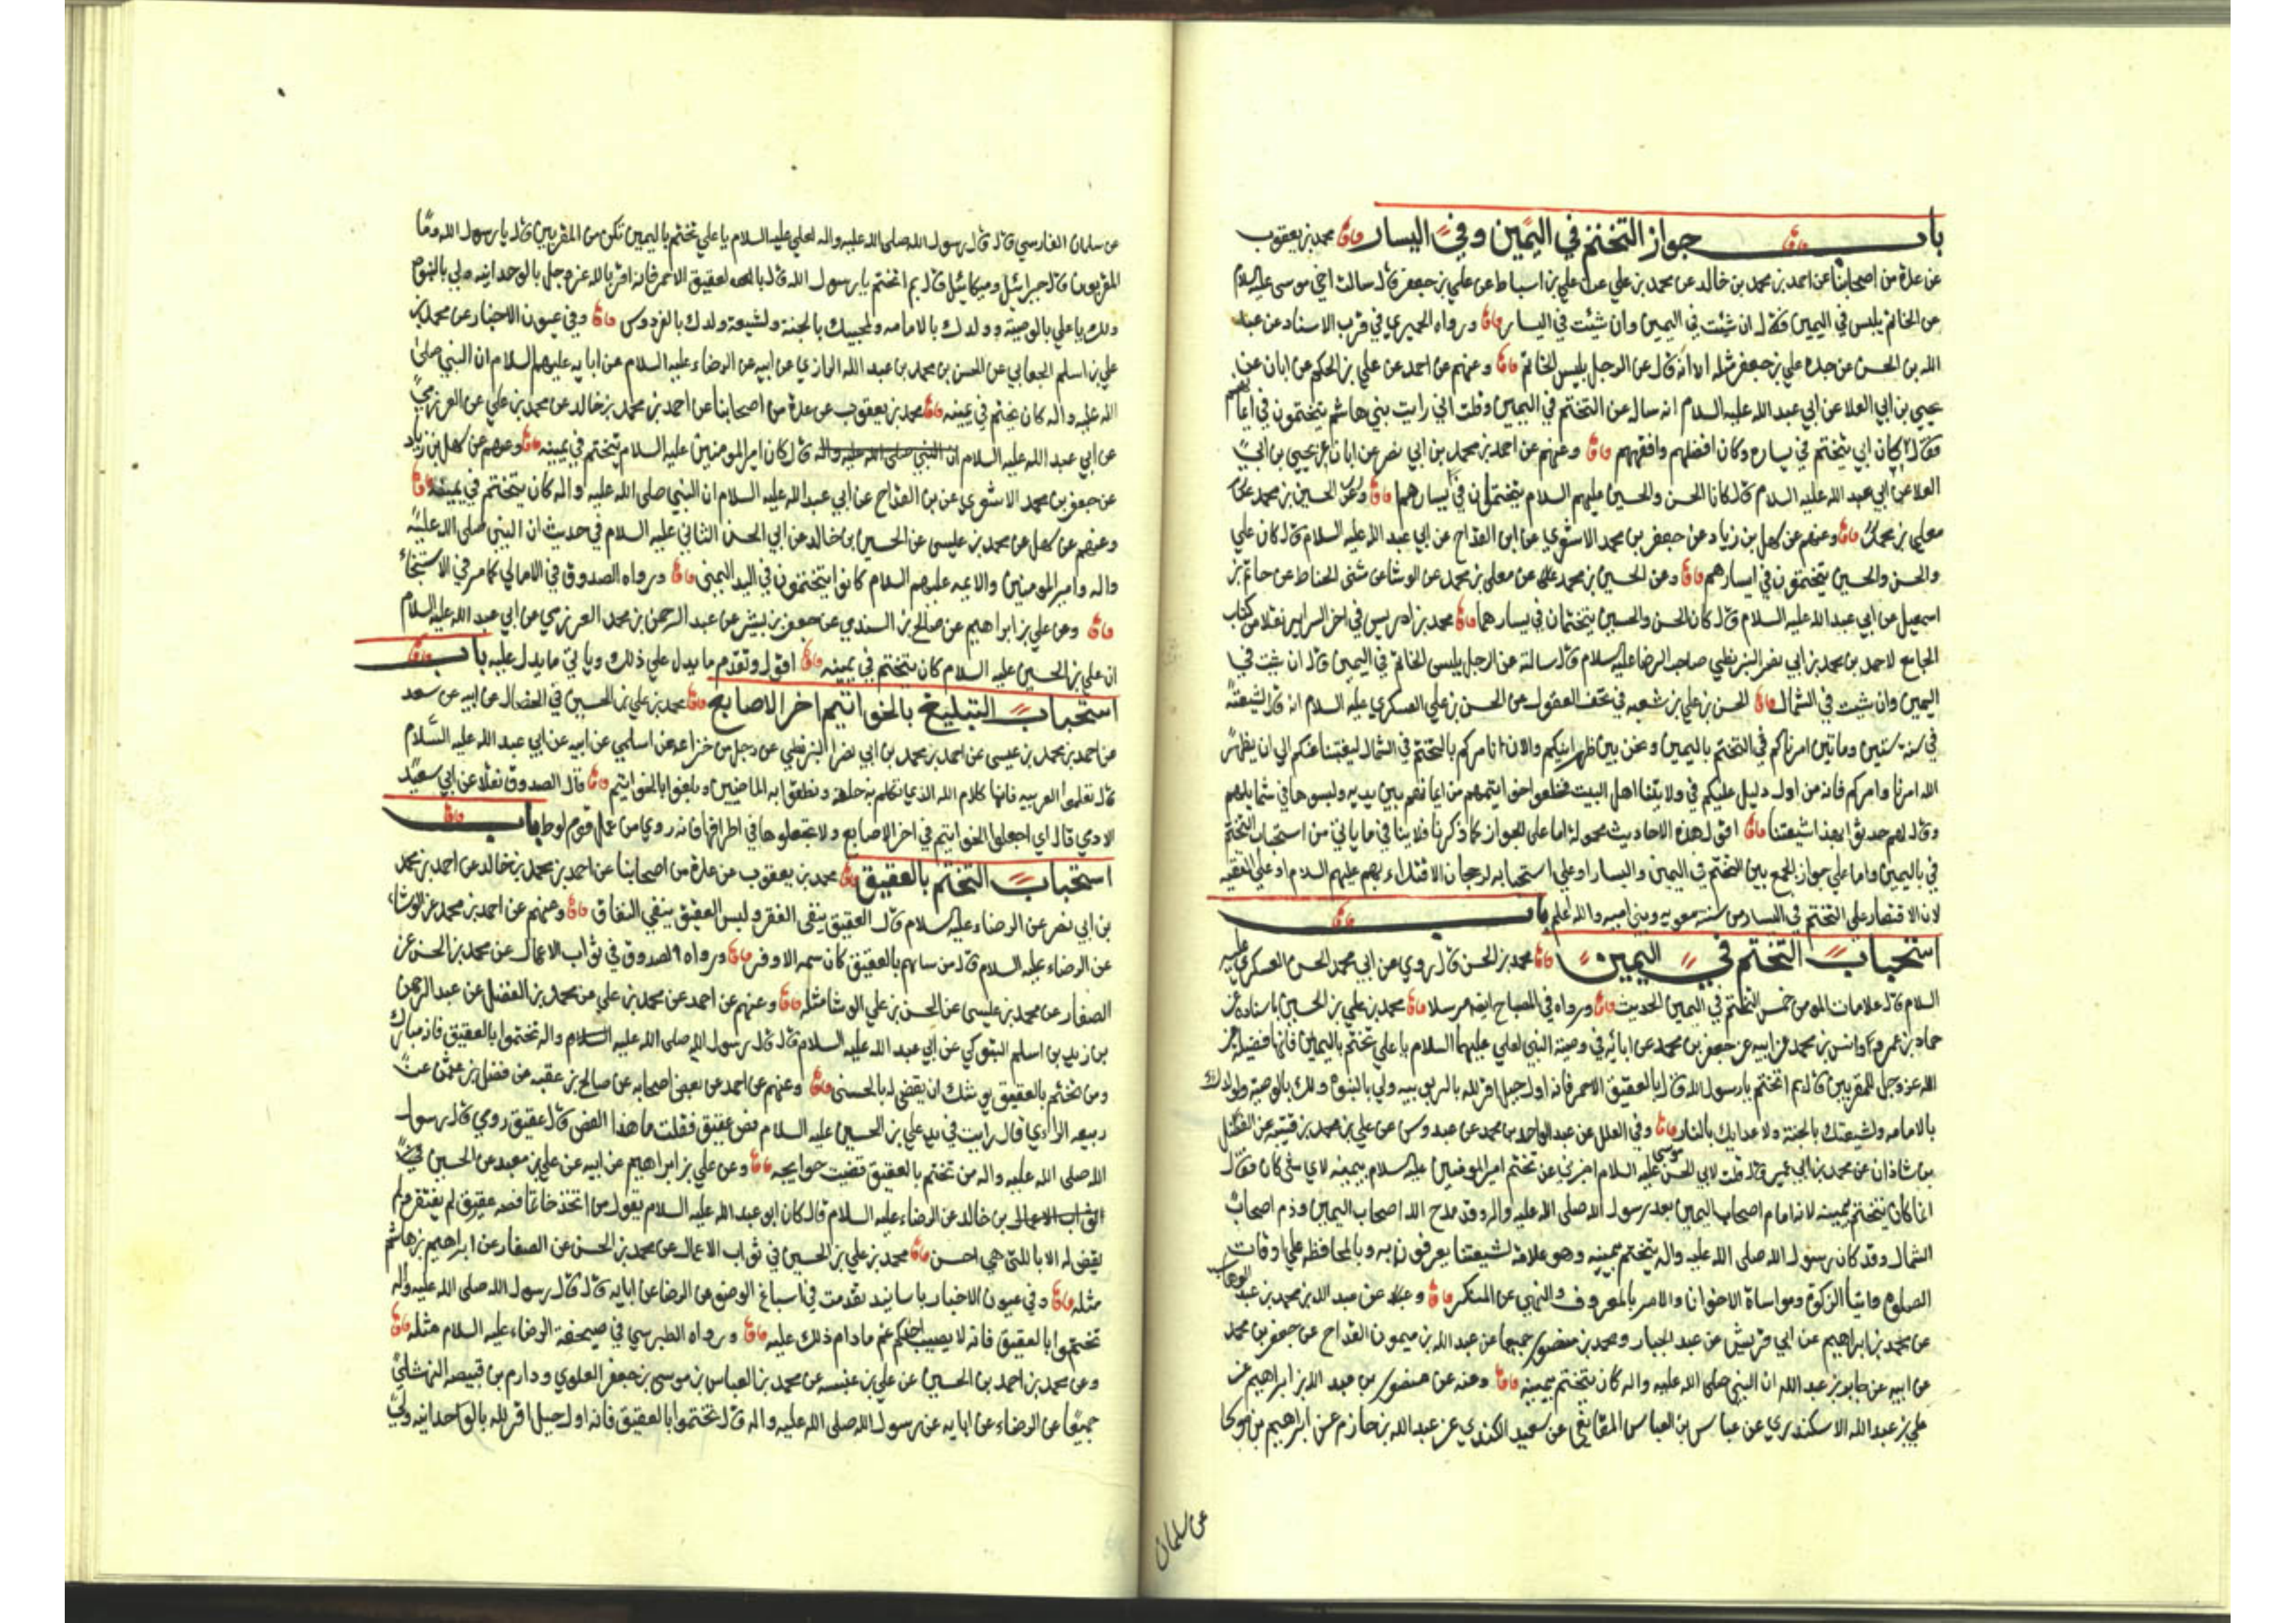 باب جواز التختم في اليمين وفي اليسار محمد بن يعقوب
عن عدة من اصحابنا عن احمد بن محمد بن خالد عن محمد بن علي عن علي بن اسباط عن علي بن جعفر قال سالت اخي موسى عليه السلام
عن الخاتم يلبس في اليمين فقال ان شئت في اليمين وان شئت في اليسار ورواه الحميري في قرب الاسناد عن عبد
الله بن الحسن عن جده علي بن جعفر مثله الا انه قال عن الرجل يلبس الخاتم وعنهم عن احمد عن علي بن الحكم عن ابان عن
يحيى بن ابي العلا عن ابي عبد الله عليه السلام انه سال عن التختم في اليمين وقلت اني رايت بني هاشم يتختمون في ايمانهم
فقال كان ابي يتختم في يساره وكان افضلهم وافقههم وعنهم عن احمد بن محمد بن ابي نصر عن ابان عن يحيى بن ابي
العلا عن ابي عبد الله عليه السلام قال كان الحسن والحسين عليهم السلام يتختمان في يسارهما وعن الحسين بن محمد عن
معلى بن محمد وعنهم عن سهل بن زياد عن جعفر بن محمد الاشعري عن ابن القداح عن ابي عبد الله عليه السلام قال كان علي
والحسن والحسين يتختمون في ايسارهم وعن الحسين بن محمد عن معلى بن محمد عن الوشا عن مثنى الحناط عن حاتم بن
اسمعيل عن ابي عبد الله عليه السلام قال كان الحسن والحسين يتختمان في يسارهما محمد بن ادريس في اخر السراير نقلا من كتاب
الجامع لاحمد بن محمد بن ابي نصر البزنطي صاحب الرضا عليه السلام قال سالته عن الرجل يلبس الخاتم في اليمين قال ان شيت في
اليمين وان شيت في الشمال الحسن بن علي بن شعبه في تحف العقول عن الحسن بن علي العسكري عليه السلام انه قال لشيعته
في سنة ستين وماتين امرناكم في التختم باليمين ونحن بين ظهرانيكم والان نامركم بالتختم في الشمال لغيبتنا عنكم الى ان يظهر
الله امرنا وامركم فانه من اول دليل عليكم في ولايتنا اهل البيت فخلعوا خواتيمهم من ايمانهم بين يديه ولبسوها في شمايلهم
وقال لهم حدثوا بهذا شيعتنا اقول هذه الاحاديث محمولة اما على الجواز كما ذكرنا فلا ينافي ما ياتي من استحباب التختم
في باليمين واما على جواز الجمع بين التختم في اليمين واليسار او على استحبابه لرجحان الاقتداء بهم عليهم السلام او على التقيه
لان الاقتصار على التختم في اليسار من سنة معويه وبني اميه والله اعلم باب
استحباب التختم في اليمين محمد بن الحسن قال روي عن ابي محمد الحسن العسكري عليه
السلام قال علامات المومن خمس التختم في اليمين الحديث ورواه في المصباح ايضا مرسلا محمد بن علي بن الحسين باسناده عن
حماد بن عمرو وانس بن محمد عن ابيه عن جعفر بن محمد عن ابائه في وصية النبي لعلي عليهما السلام يا علي تختم باليمين فانها فضيلة من
الله عز وجل للمقربين قال بم اتختم يا رسول الله قال بالعقيق الاحمر فانه اول جبل اقر لله بالربوبيه ولي بالنبوه ولك بالوصيه ولولدك
بالامامه ولشيعتك بالجنة ولاعدايك بالنار وفي العلل عن عبد الواحد بن محمد بن عبدوس عن علي بن محمد بن قتيبه عن الفضل
بن شاذان عن محمد بن ابي عمير قال قلت لابي الحسن موسى عليه السلام اخبرني عن تختم امير المومنين عليه السلام بيمينه لاي شي كان فقال
انما كان يتختم بيمينه لانه امام اصحاب اليمين بعد رسول الله صلى الله عليه واله وقد مدح الله اصحاب اليمين وذم اصحاب
الشمال وقد كان رسول الله صلى الله عليه واله يتختم بيمينه وهو علامة لشيعتنا يعرفون به وبالمحافظه على اوقات
الصلوة وايتاء الزكوة ومواساة الاخوان والامر بالمعروف والنهي عن المنكر وعن عبد الله بن محمد بن عبد الوهاب
عن محمد بن ابراهيم عن ابي قريش عن عبد الجبار ومحمد بن منصور جميعا عن عبد الله بن ميمون القداح عن جعفر بن محمد
عن ابيه عن جابر بن عبد الله ان النبي صلى الله عليه واله كان يتختم بيمينه وعنه عن منصور بن عبد الله بن ابراهيم عن
علي بن عبد الله الاسكندري عن عباس بن العباس المقانعي عن سعيد الكندي عن عبد الله بن حازم عن ابراهيم بن موسى
عن سلمان
عن سلمان الفارسي قال قال رسول الله صلى الله عليه واله لعلي عليه السلام يا علي تختم باليمين تكن من المقربين قال يا رسول الله وما
المقربون قال جبرائيل وميكائيل قال بم اتختم يا رسول الله قال بالعقيق الاحمر فانه اقر لله عز وجل بالوحدانيه ولي بالنبوه
ولك يا علي بالوصية وولدك بالامامه ولمحبيك بالجنة ولشيعة ولدك بالفردوس وفي عيون الاخبار عن محمد بن
علي بن اسلم الجعابي عن الحسن بن محمد بن عبد الله الرازي عن ابيه عن الرضا عليه السلام عن ابايه عليهم السلام ان النبي صلى
الله عليه واله كان يتختم في يمينه محمد بن يعقوب عن عدة من اصحابنا عن احمد بن محمد بن خالد عن محمد بن علي عن العرزمي
عن ابي عبد الله عليه السلام ان النبي صلى الله عليه واله قال كان امير المومنين عليه السلام يتختم في يمينه وعنهم عن سهل بن زياد
عن جعفر بن محمد الاشعري عن بن القداح عن ابي عبد الله عليه السلام ان النبي صلى الله عليه واله كان يتختم في يمينه
وعنهم عن سهل عن محمد بن عليسى عن الحسين بن خالد عن ابي الحسن الثاني عليه السلام في حديث ان النبي صلى الله عليه
واله وامير المومنين والائمه عليهم السلام كانوا يتختمون في اليد اليمنى ورواه الصدوق في الامالي كما مر في الاستنجاء
وعن علي بن ابراهيم عن صالح بن السندي عن جعفر بن بشير عن عبد الرحمن بن محمد العرزمي عن ابي عبد الله عليه السلام
ان علي بن الحسين عليه السلام كان يتختم في يمينه اقول وتقدم ما يدل على ذلك وياتي ما يدل عليه باب
استحباب التبليغ بالخواتيم اخر الاصابع محمد بن علي بن الحسين في الخصال عن ابيه عن سعد
عن احمد بن محمد بن عيسى عن احمد بن محمد بن ابي نصر البزنطي عن رجل من خزاعه عن اسلمي عن ابيه عن ابي عبد الله عليه السلام
قال تعلموا العربيه فانها كلام الله الذي تكلم به خلقه ونطقوا به الماضيين وبلغوا بالخواتيم قال الصدوق نقلا عن ابي سعيد
الادمي قال اي اجعلوا الخواتيم في اخر الاصابع ولا تجعلوها في اطرافها فانه روي من عمل قوم لوط باب
استحباب التختم بالعقيق محمد بن يعقوب عن عدة من اصحابنا عن احمد بن محمد بن خالد عن احمد بن محمد
بن ابي نصر عن الرضا عليه السلام قال العقيق ينفى الفقر ولبس العقيق ينفي النفاق وعنهم عن احمد بن محمد عن الوشا
عن الرضا عليه السلام قال من ساهم بالعقيق كان سهمه الاوفر ورواه الصدوق في ثواب الاعمال عن محمد بن الحسن عن
الصفار عن محمد بن عليسى عن الحسن بن علي الوشا مثله وعنهم عن احمد عن محمد بن علي عن محمد بن الفضل عن عبد الرحمن
بن زيد بن اسلم التبوكي عن ابي عبد الله عليه السلام قال قال رسول الله صلى الله عليه واله تختموا بالعقيق فانه مبارك
ومن تختم بالعقيق يوشك ان يقضى له بالحسنى وعنهم عن احمد عن بعض اصحابه عن صالح بن عقبه عن فضل بن عثمن عن
ربيعه الراي قال رايت في يد علي بن الحسين عليه السلام فص عقيق فقلت ما هذا الفص قال عقيق رومي قال رسول
الله صلى الله عليه واله من تختم بالعقيق قضيت حوايجه وعن علي بن ابراهيم عن ابيه عن علي بن معبد عن الحسين
بن خالد عن الرضا عليه السلام قال كان ابو عبد الله عليه السلام يقول من اتخذ خاتما فصه عقيق لم يفتقر ولم
يقض له الا بالتي هي احسن محمد بن علي بن الحسين في ثواب الاعمال عن محمد بن الحسن عن الصفار عن ابراهيم بن هاشم
مثله وفي عيون الاخبار باسانيد تقدمت في اسباغ الوضوء عن الرضا عن ابايه قال قال رسول الله صلى الله عليه واله
تختموا بالعقيق فانه لا يصيب احدكم غم مادام ذلك عليه ورواه الطبرسي في صحيفة الرضا عليه السلام مثله
وعن محمد بن احمد بن الحسين عن علي بن عنبسه عن محمد بن العباس بن موسى بن جعفر العلوي ودارم بن قبيصه النهشلي
جميعا عن الرضا عن ابايه عن رسول الله صلى الله عليه واله قال تختموا بالعقيق فانه اول جبل اقر لله بالواحدانيه ولي